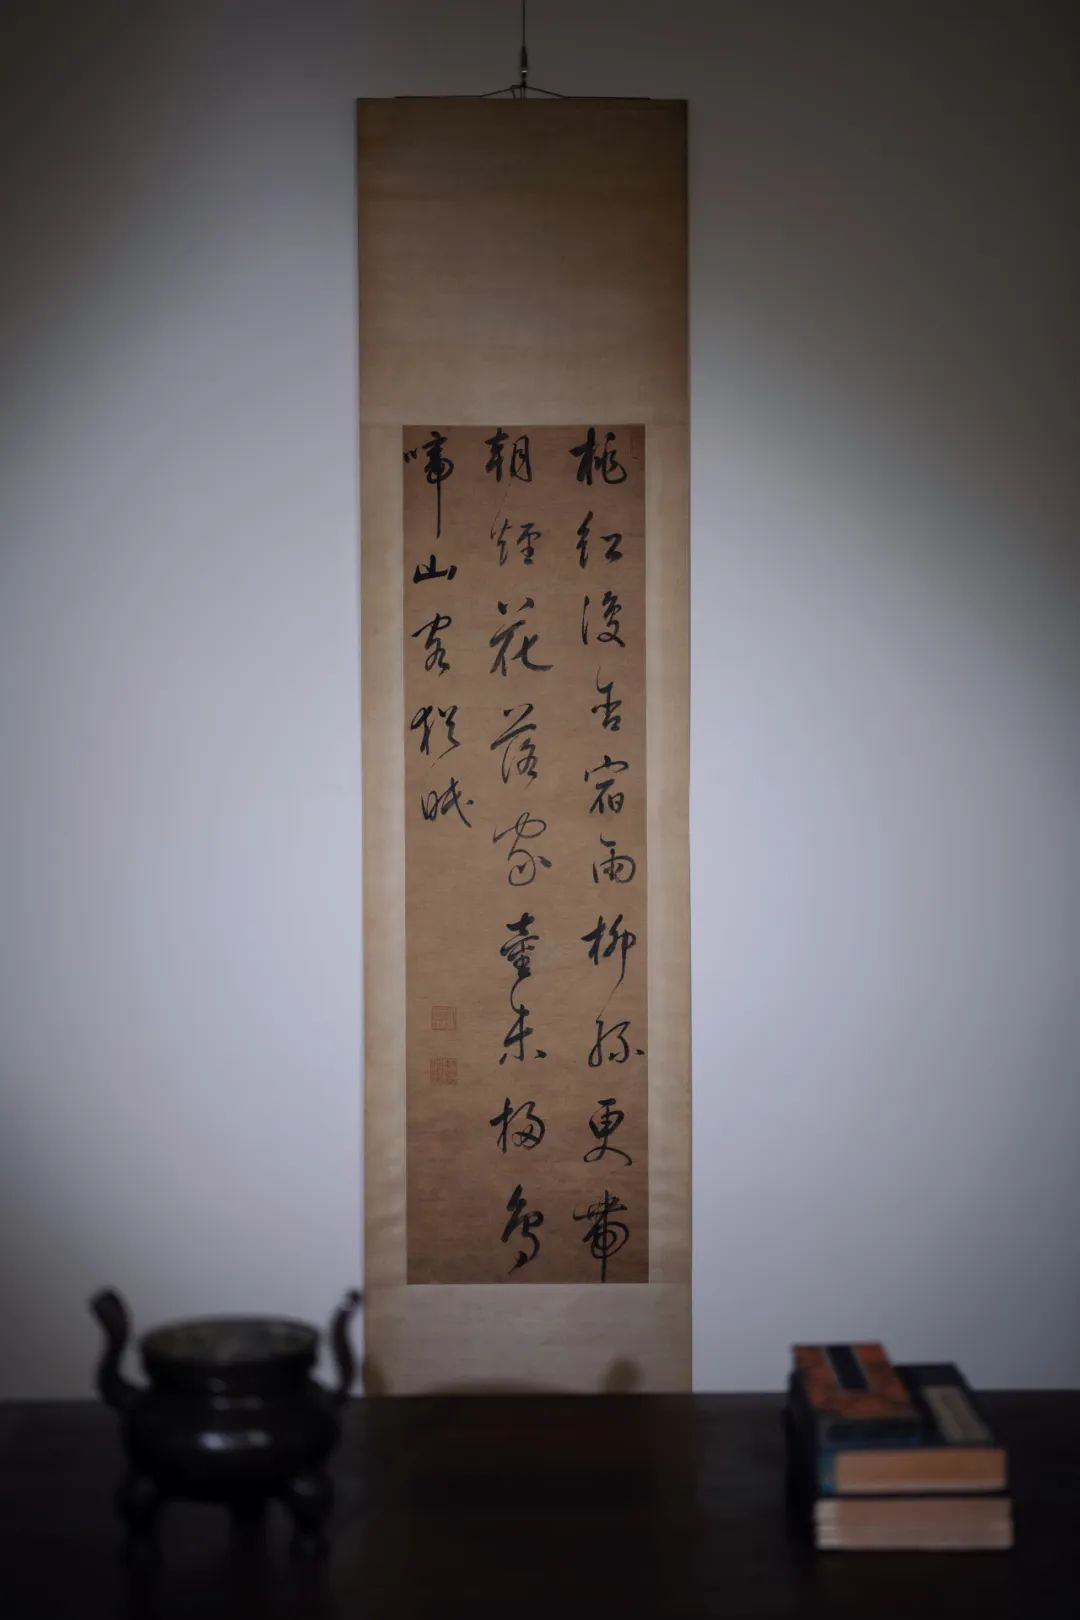 桃紅復含宿雨柳綠更帶
朝煙花落家童未掃鳥
啼山客猶眠